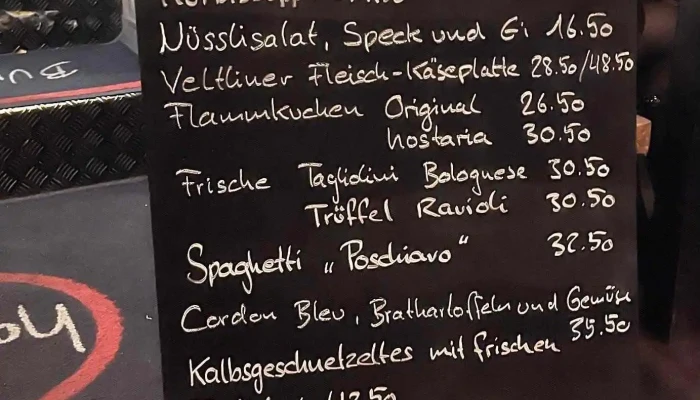 Nüsslisalat, Speck und Ei 16.50
Veltliner Fleisch-Käseplatte 28.50/48.50
Flammkuchen Original 26.50
hostaria 30.50
Frische Tagliolini Bolognese 30.50
Trüffel Ravioli 30.50
Spaghetti „Poschiavo" 32.50
Cordon Bleu, Bratkartoffeln und Gemüse
35.50
Kalbsgeschnetzeltes mit frischen